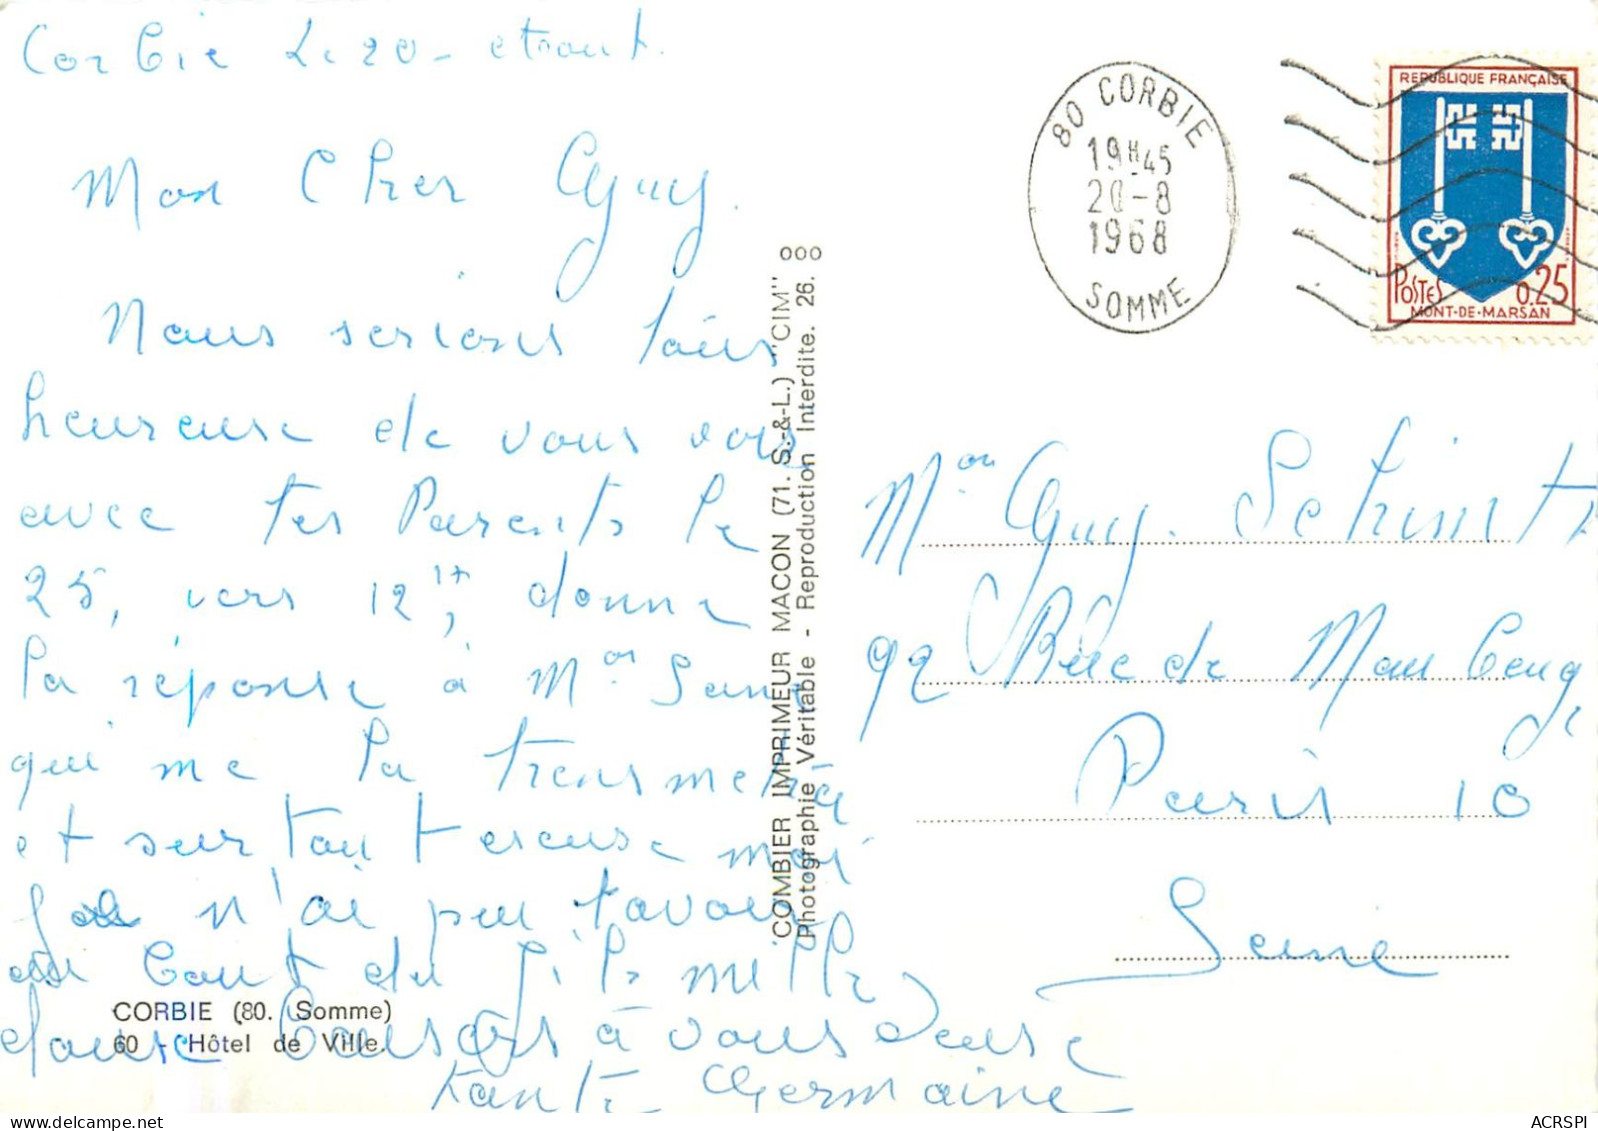 Corbie Le 20 - et aout.
Mon Cher Guy.
Nous serions tous
heureuse de vous voir
avec tes Parents le
25, vers 12H, donne
la réponse à Mon
qui me la transmetra
et surtout excuse moi
n'ai pu t'avoir
au bout du fil. mille
douse baisers à vous deuse
tante Germaine
CORBIE (80. Somme)
60 - Hôtel de Ville.
COMBIER IMPRIMEUR MACON (71. S.-&-L.) "CIM"
Photographie Véritable - Reproduction Interdite. 26. 000
80 CORBIE
19H45
20-8
1968
SOMME
REPUBLIQUE FRANÇAISE
POSTES 0,25
MONT-DE-MARSAN
Mon Guy. Schmitt
92 Rue de Maubeuge
Paris 10
Seine
ACRSPI